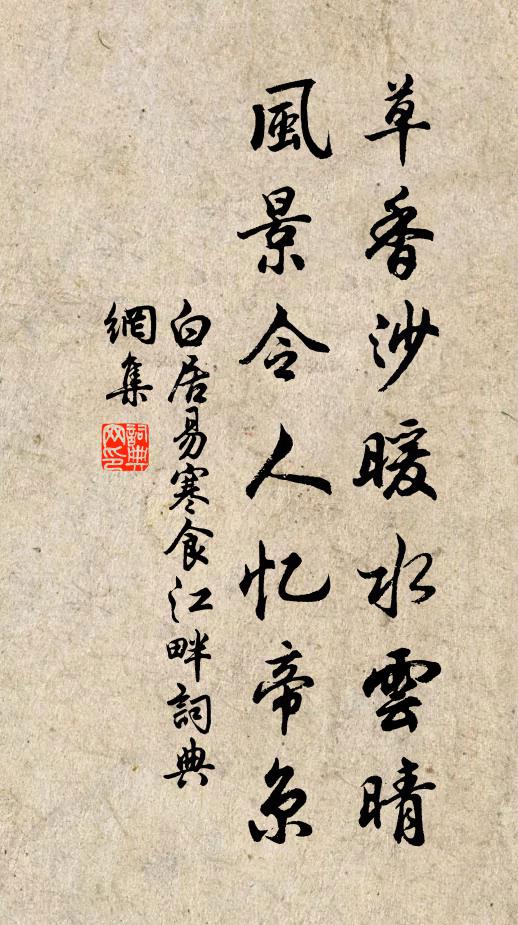 草香沙暖水雲晴
風景令人忆帝京
白居易寒食江畔詞典
網集
詞典网印